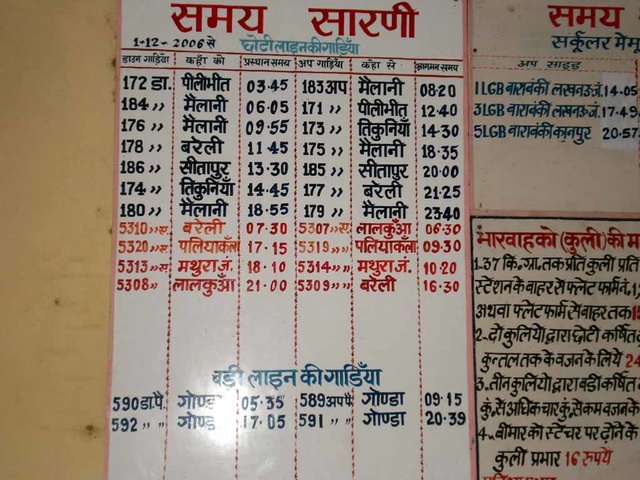 समय सारणी
1-12-2006 से छोटी लाइन की गाड़ियाँ
डाउन गाड़ियाँ कहाँ को प्रस्थान समय अप गाड़ियाँ कहाँ से आगमन समय
172 डा. पीलीभीत 03.45 183 अप मैलानी 08.20
184 ,, मैलानी 06.05 171 ,, पीलीभीत 12.40
176 ,, मैलानी 09.55 173 ,, तिकुनियाँ 14.30
178 ,, बरेली 11.45 175 ,, मैलानी 18.35
186 ,, सीतापुर 13.30 185 ,, सीतापुर 20.00
174 ,, तिकुनियाँ 14.45 177 ,, बरेली 21.25
180 ,, मैलानी 18.55 179 ,, मैलानी 23.40
5310 ,, स. बरेली 07.30 5307 ,, स. लालकुआँ 06.30
5320 ,, स. पलियाकलाँ 17.15 5319 ,, पलियाकलाँ 09.30
5313 ,, स. मथुरा जं. 18.10 5314 ,, मथुरा जं. 10.20
5308 ,, लालकुआँ 21.00 5309 ,, बरेली 16.30
बड़ी लाइन की गाड़ियाँ
590 डा.पै. गोण्डा 05.35 589 अप पै. गोण्डा 09.15
592 ,, ,, गोण्डा 17.05 591 ,, ,, गोण्डा 20.39
समय
सर्कुलर मेमू
अप साइड
1 LGB बाराबंकी लखनऊ जं. 14.05
3 LGB बाराबंकी लखनऊ जं. 17.49
5 LGB बाराबंकी कानपुर 20.57
भारवाहको (कुली) की
1. 37 कि. ग्रा. तक प्रति कुली प्रति
स्टेशन के बाहर से प्लेट फार्म नं. 1
अथवा प्लेट फार्म से बाहर तक
2. दो कुलियों द्वारा छोटी कर्षित
कुन्तल तक के वजन के लिये 24
3. तीन कुलियों द्वारा बडी कर्षित
कुं. से अधिक चार कुं. से कम वजन के
4. बीमार को स्टेचर पर ढोने के
कुली प्रभार 16 रुपये